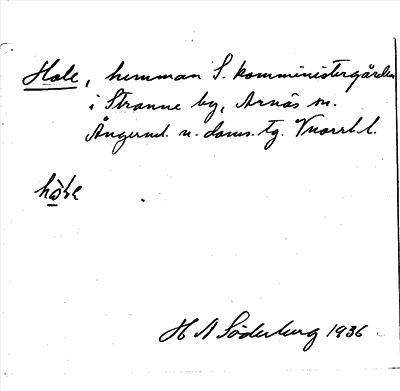 Hole, hemman S. komministergården
i Stranne by, Arnäs sn.
Ångerml. n. doms. tg. Vnorrl. l.
H A Söderberg 1936